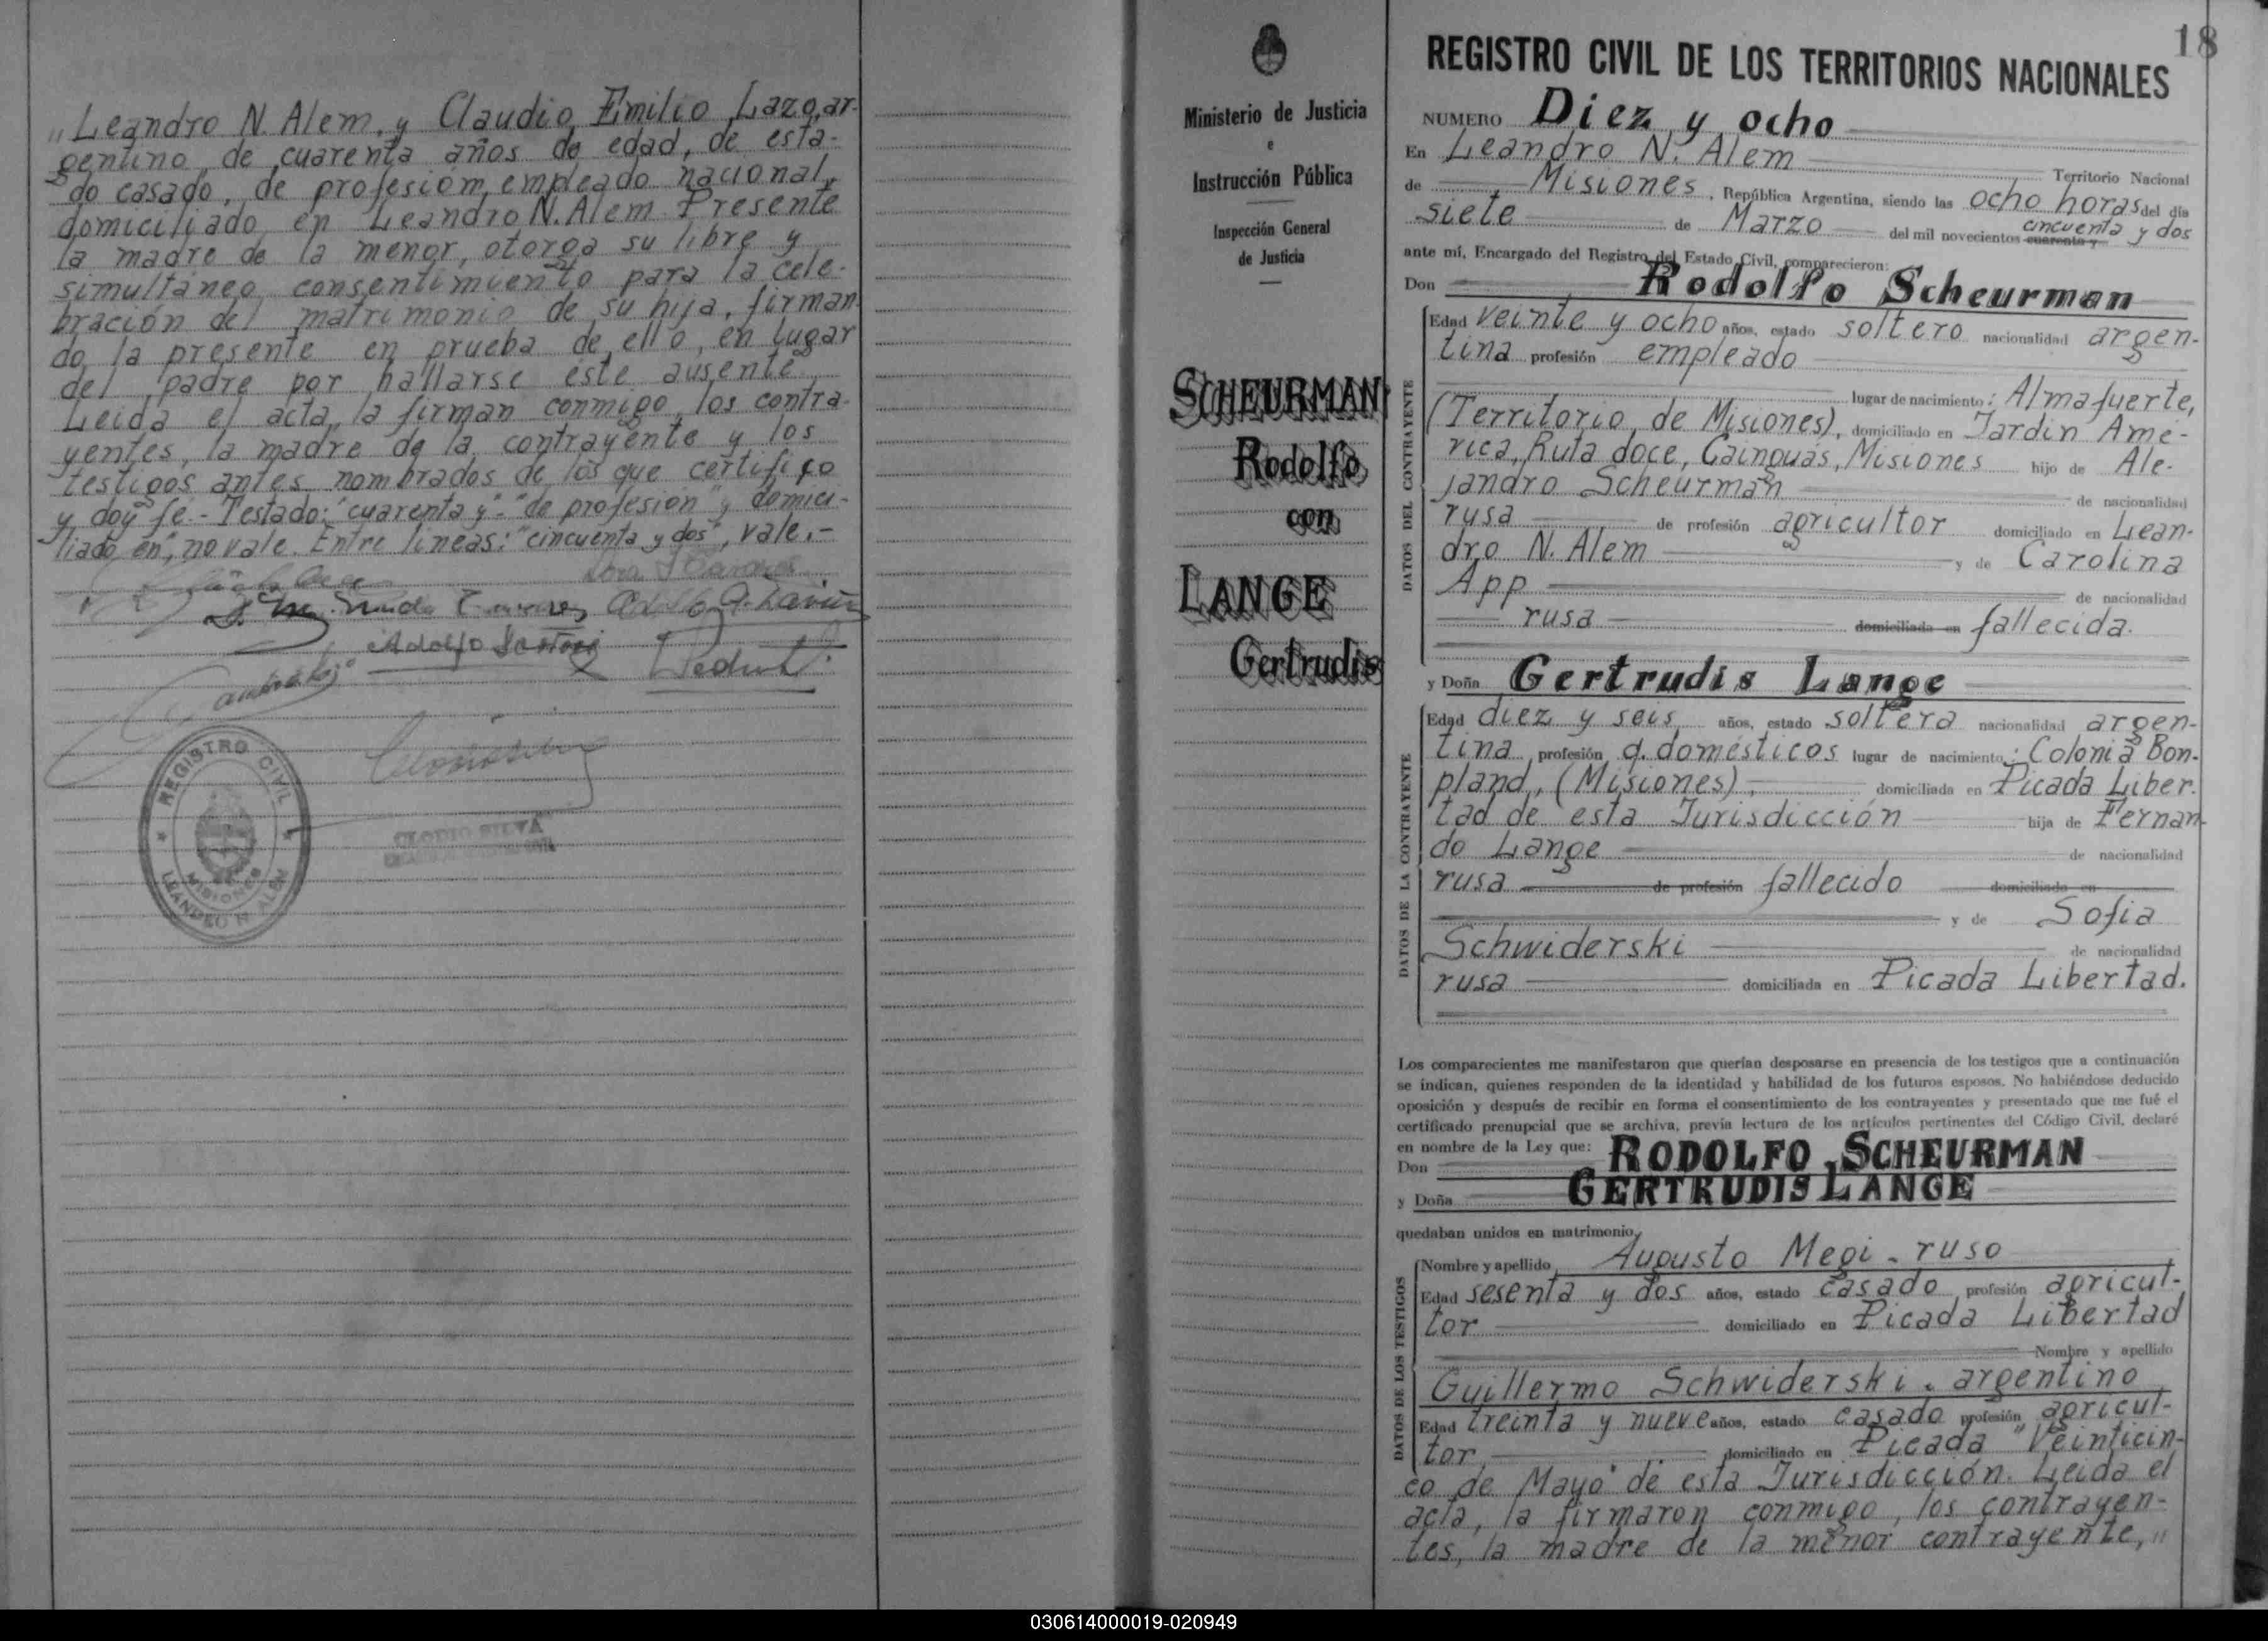 „Leandro N. Alem, y Claudio Emilio Lazo, ar-
gentino, de cuarenta años de edad, de esta-
do casado, de profesión, empleado nacional,
domiciliado en Leandro N. Alem. Presente
la madre de la menor, otorga su libre y
simultáneo consentimiento para la cele-
bración del matrimonio de su hija, firman-
do la presente en prueba de ello, en lugar
del padre por hallarse éste ausente.
Leida el acta, la firman conmigo, los contra-
yentes, la madre de la contrayente y los
testigos antes nombrados de los que certifico
y doy fé.- Testado: "cuarenta y"- "de profesión" y domici-
liado en", no vale. Entre líneas: "cincuenta y dos", vale.-
REGISTRO CIVIL
MISIONES
LEANDRO N. ALEM
CLODIO SILVA
Ministerio de Justicia
e
Instrucción Pública
Inspección General
de Justicia
SCHEURMAN
Rodolfo
con
LANGE
Gertrudis
18
REGISTRO CIVIL DE LOS TERRITORIOS NACIONALES
NUMERO Diez y ocho
En Leandro N. Alem Territorio Nacional
de Misiones, República Argentina, siendo las ocho horas del día
siete de Marzo del mil novecientos cuarenta y cincuenta y dos
ante mí, Encargado del Registro del Estado Civil, comparecieron:
Don Rodolfo Scheurman
DATOS DEL CONTRAYENTE
Edad veinte y ocho años, estado soltero nacionalidad argen-
tina profesión empleado
lugar de nacimiento: Almafuerte,
(Territorio de Misiones), domiciliado en Jardín Amé-
rica, Ruta doce, Cainguás, Misiones hijo de Ale-
jandro Scheurman de nacionalidad
rusa de profesión agricultor domiciliado en Lean-
dro N. Alem y de Carolina
App de nacionalidad
rusa domiciliada en fallecida.
y Doña Gertrudis Lange
DATOS DE LA CONTRAYENTE
Edad diez y seis años, estado soltera nacionalidad argen-
tina profesión q. domésticos lugar de nacimiento: Colonia Bon-
pland, (Misiones), domiciliada en Picada Liber-
tad de esta Jurisdicción hija de Fernan-
do Lange de nacionalidad
rusa de profesión fallecido domiciliado en
y de Sofia
Schwiderski de nacionalidad
rusa domiciliada en Picada Libertad.
Los comparecientes me manifestaron que querían desposarse en presencia de los testigos que a continuación
se indican, quienes responden de la identidad y habilidad de los futuros esposos. No habiéndose deducido
oposición y después de recibir en forma el consentimiento de los contrayentes y presentado que me fué el
certificado prenupcial que se archiva, previa lectura de los artículos pertinentes del Código Civil, declaré
en nombre de la Ley que:
Don RODOLFO SCHEURMAN
y Doña GERTRUDIS LANGE
quedaban unidos en matrimonio,
DATOS DE LOS TESTIGOS
Nombre y apellido Augusto Megi - ruso
Edad sesenta y dos años, estado casado profesión agricul-
tor domiciliado en Picada Libertad
Nombre y apellido
Guillermo Schwiderski - argentino
Edad treinta y nueve años, estado casado profesión agricul-
tor, domiciliado en Picada "Veinticin-
co de Mayo" de esta Jurisdicción. Leida el
acta, la firmaron conmigo, los contrayen-
tes, la madre de la menor contrayente, „
030614000019-020949